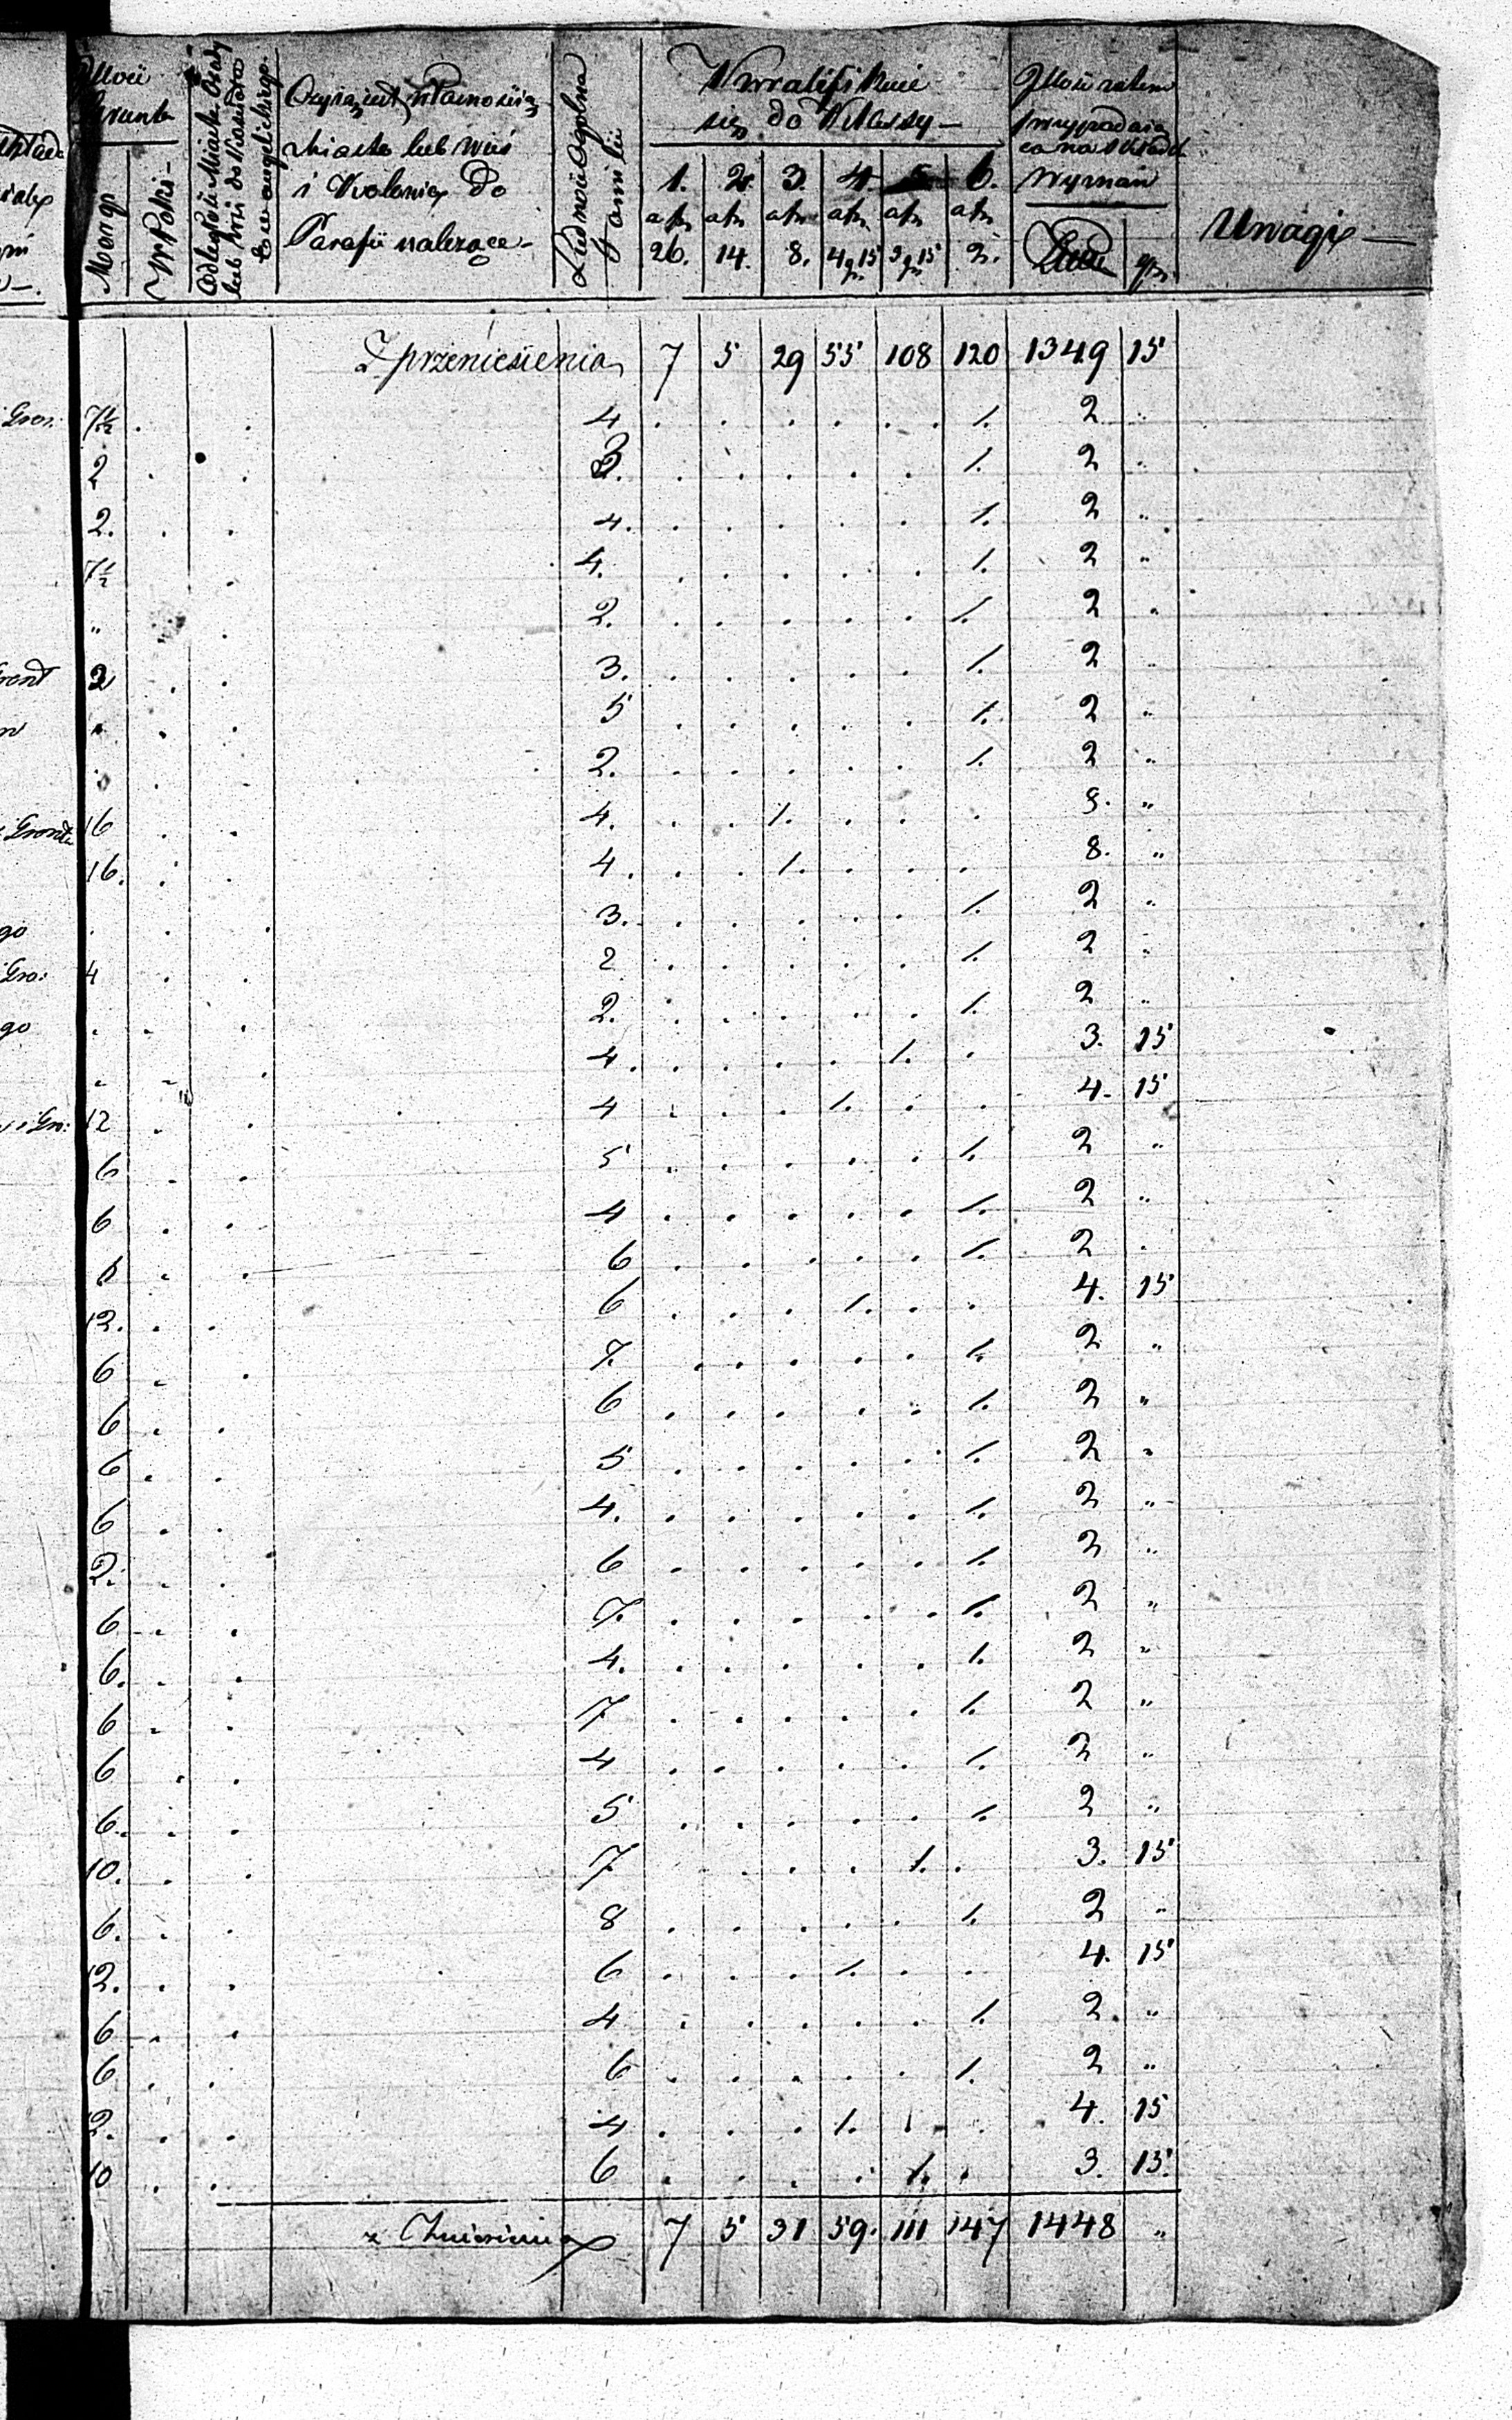 Ilość Gruntu
Morgi
Włóki
Odległość Miasta Osady
lub Wsi do Kościoła
Ewangelickiego
Czyją jest własnością
Miasto lub Wieś
i Kolonia do
Parafii należące
Ludność Ogólna
Familii
Kwalifikuie
się do Klassy
1. a fn 26.
2. a fn 14.
3. a fn 8.
4. a fn 4 gr 15
5. a fn 3 gr 15
6. a fn 2.
Ilość zatem
przypadaią
ca na
Wymiar
gr.
Uwagi
Z przeniesienia 7 5 29 55 108 120 1349 15
Gron. 7½ . . 4 . . . . . 1. 2 "
2 . . . . . . . 1. 2 "
2. . . 4. . . . . . 1. 2 "
7½ . 4. . . . . . 1. 2 "
" . 2. . . . . . 1. 2 "
2 . . 3. . . . . . 1. 2 "
" . . 5 . . . . . 1. 2 "
. . 2. . . . . . 1. 2 "
Gront 16 . . 4. . . 1. . . . 8. "
16. . . 4. . . 1. . . . 8. "
go . . . 3. . . . . . 1. 2 "
Gro: 4 . . 2 . . . . . 1. 2 "
go . . . 2. . . . . . 1. 2 "
. . . 4. . . . . 1. . 3. 15
i Gro: 12 . . 4 . . . 1. . . 4. 15
6 . . 5 . . . . . 1. 2 "
6 . . 4 . . . . . 1. 2 "
6 . . 6 . . . . . 1. 2 "
12. . . 6 . . . 1. . . 4. 15
6 . . 7. . . . . . 1. 2 "
6 . . 6 . . . . . 1. 2 "
6 . . 5 . . . . . 1. 2 "
6 . . 4. . . . . . 1. 2 "
2. . . 6 . . . . . 1. 2 "
6 . . 7. . . . . . 1. 2 "
6. . . 4. . . . . . 1. 2 "
6 . . 7 . . . . . 1. 2 "
6 . . 4 . . . . . 1. 2 "
6. . . 5 . . . . . 1. 2 "
10. . . 7 . . . 1. . 3. 15
6. . . 8 . . . . . 1. 2 "
12. . . 6 . . . 1. . . 4. 15
6 . . 4 . . . . . 1. 2. "
6 . . 6 . . . . . 1. 2 "
12. . . 4 . . . 1. . . 4. 15
10 . . 6 . . . . 1. . 3. 15.
7 5 31 59. 111 147 1448 "